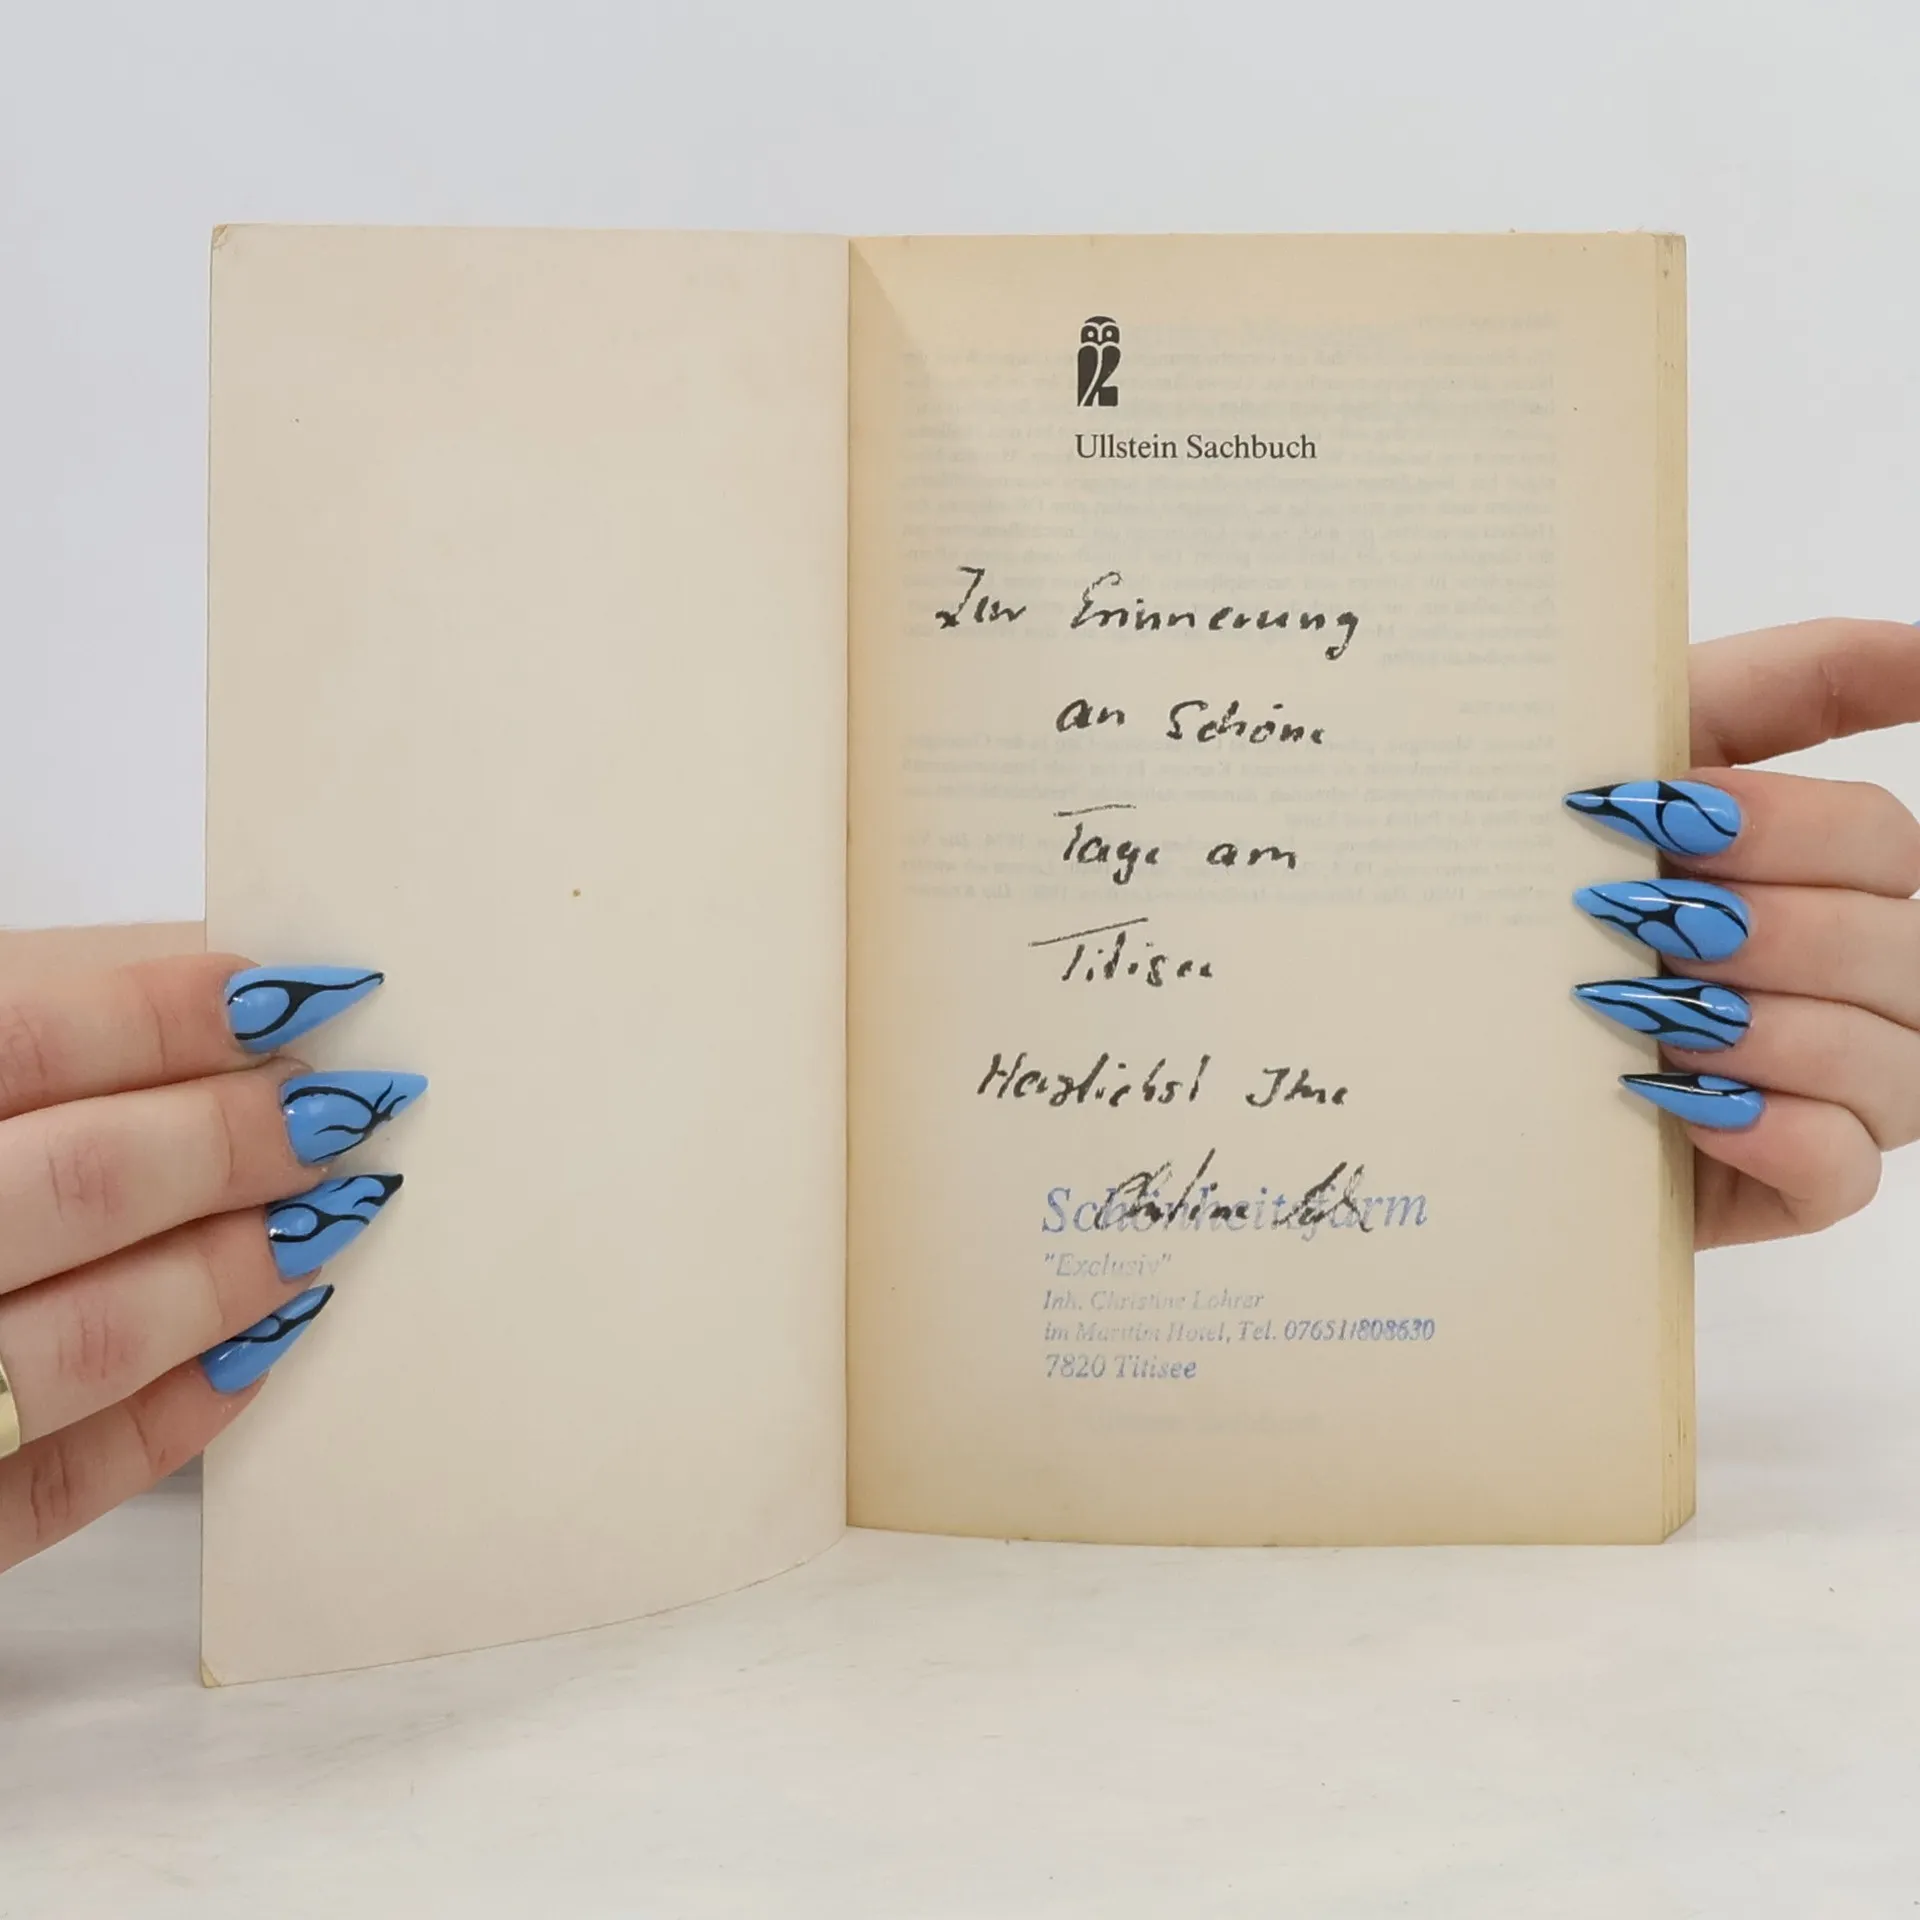 Ullstein Sachbuch
Zur Erinnerung
an Schöne
Tage am
Titisee
Herzlichst Ihre
Christine
Schönheitsfarm
"Exclusiv"
Inh. Christine Lohrer
im Maritim Hotel, Tel. 07651/808630
7820 Titisee